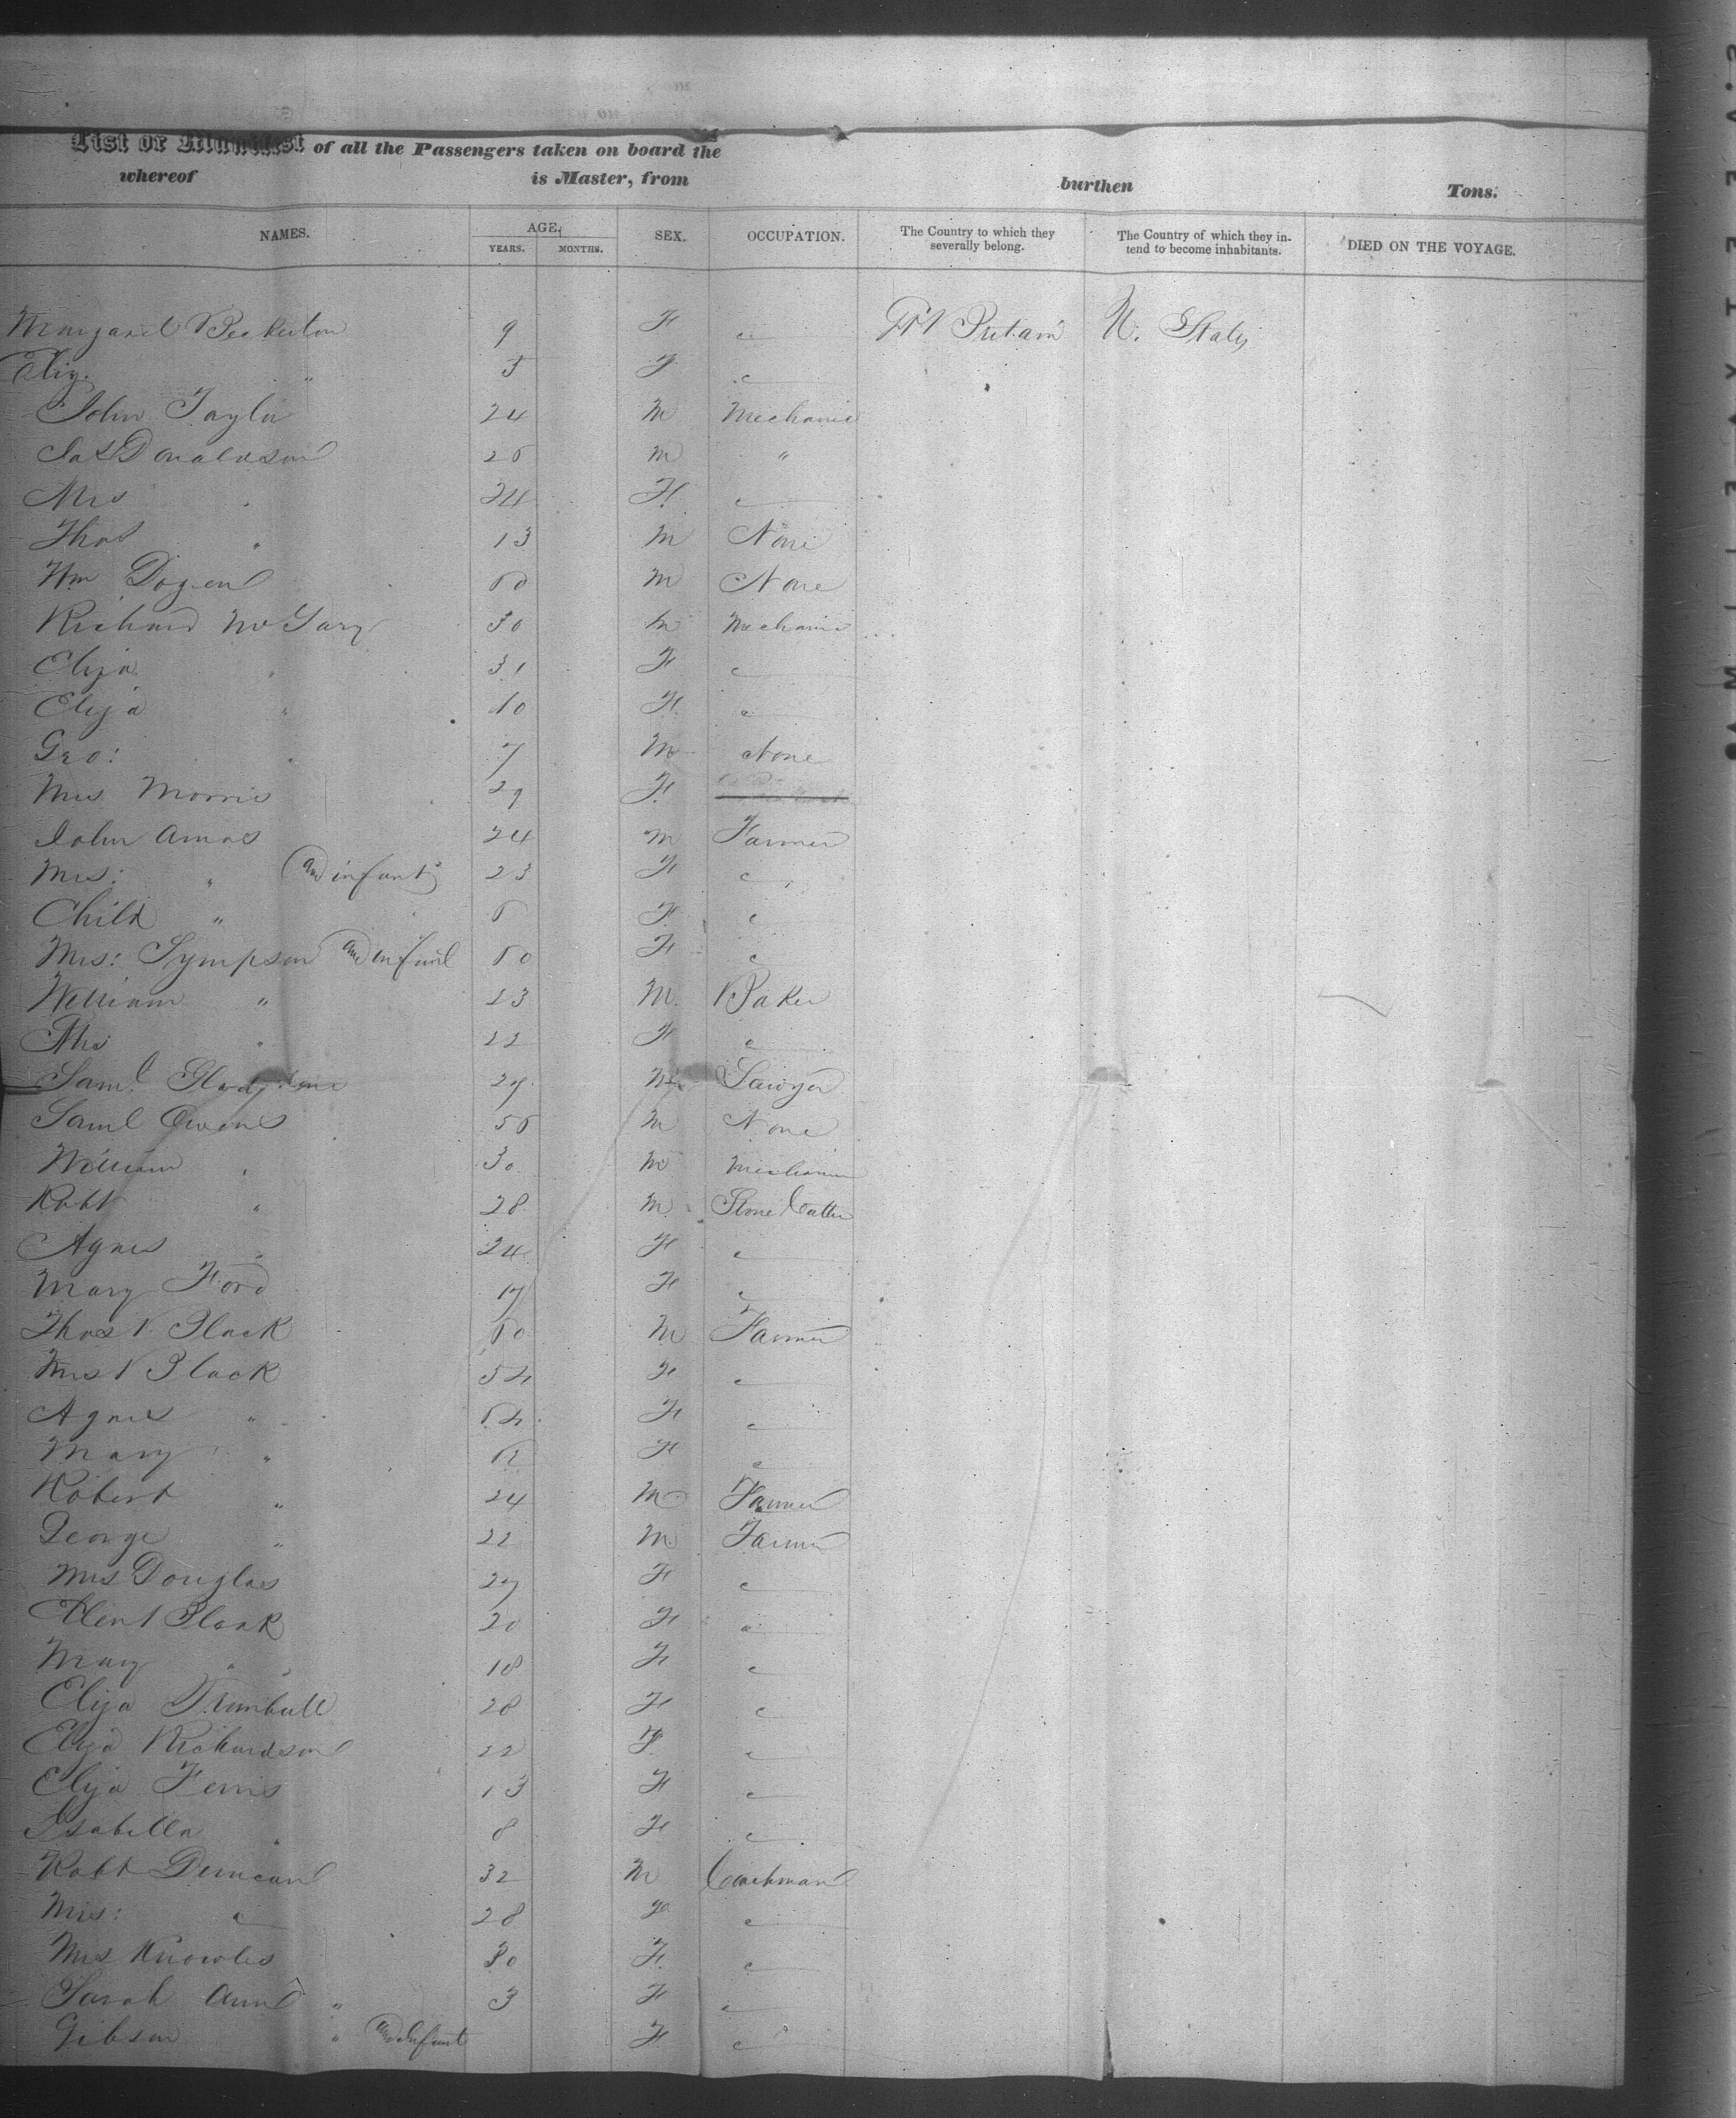 List or Manifest of all the Passengers taken on board the
whereof is Master, from burthen Tons.
NAMES. AGE. SEX. OCCUPATION. The Country to which they severally belong. The Country of which they intend to become inhabitants. DIED ON THE VOYAGE.
YEARS. MONTHS.
Margaret 9 F " Gt Britain U. States
Eliz. " 5 F "
John Taylor 24 M Mechanic
Jas Donaldson M "
Mrs " 24 F "
Thos " 13 M None
Wm M None
Richard McGary 30 M Mechanic
Eliza " 31 F "
Eliza " 10 F "
Geo: " 7 M None
Mrs Morris 29 F
John Amos 24 M Farmer
Mrs: " and infant 23 F "
Child " F "
Mrs: Sympson and infant F "
William " 23 M Baker
Mrs " 22 F "
Saml 27 M Sawyer
Saml Owens M None
William " 30 M Mechanic
Robt " 28 M Stone Cutter
Agnes " 24 F "
Mary Ford 17 F "
Thos Black M Farmer
Mrs Black 54 F "
Agnes " F "
Mary " F "
Robert " 24 M Farmer
George " 22 M Farmer
Mrs Douglas 27 F "
Ellen Black 20 F "
Mary " 18 F "
Eliza Trumbull 28 F "
Eliza Richardson 22 F "
Eliza Ferris 13 F "
Isabella " 8 F "
Robt Duncan 32 M Coachman
Mrs: " 28 F "
Mrs Knowles 30 F "
Sarah Ann " 3 F "
Gibson " and Infant F "